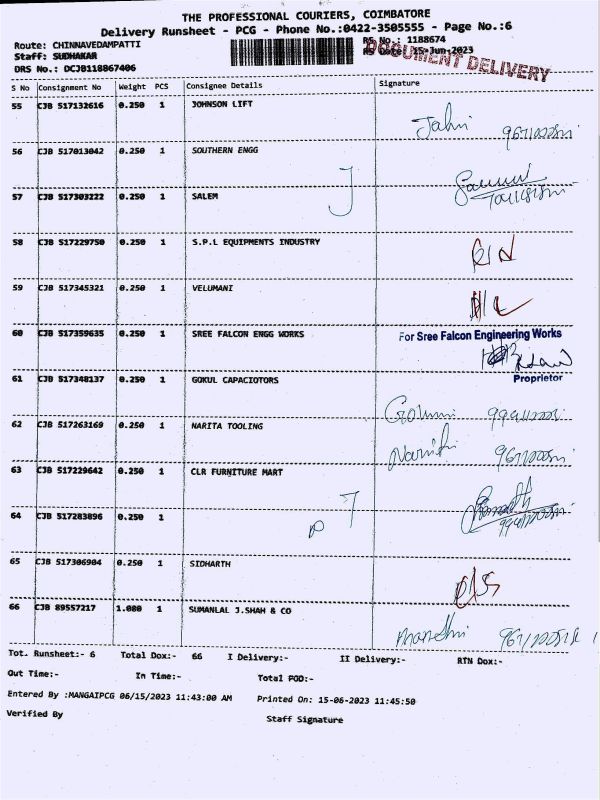 THE PROFESSIONAL COURIERS, COIMBATORE
Delivery Runsheet - PCG - Phone No.:0422-3505555 - Page No.:6
Route: CHINNAVEDAMPATTI RS No.: 1188674
Staff: SUDHAKAR RS Date: 15-Jun-2023
DOCUMENT DELIVERY
DRS No.: DCJB118867406
S No Consignment No Weight PCS Consignee Details Signature
55 CJB 517132616 0.250 1 JOHNSON LIFT
56 CJB 517013042 0.250 1 SOUTHERN ENGG
57 CJB 517303222 0.250 1 SALEM
58 CJB 517229750 0.250 1 S.P.L EQUIPMENTS INDUSTRY
59 CJB 517345321 0.250 1 VELUMANI
60 CJB 517359635 0.250 1 SREE FALCON ENGG WORKS For Sree Falcon Engineering Works
Proprietor
61 CJB 517348137 0.250 1 GOKUL CAPACIOTORS
62 CJB 517263169 0.250 1 NARITA TOOLING
63 CJB 517229642 0.250 1 CLR FURNITURE MART
64 CJB 517283896 0.250 1
65 CJB 517306904 0.250 1 SIDHARTH
66 CJB 89557217 1.080 1 SUMANLAL J.SHAH & CO
Tot. Runsheet:- 6 Total Dox:- 66 I Delivery:- II Delivery:- RTN Dox:-
Out Time:- In Time:- Total POD:-
Entered By :MANGAIPCG 06/15/2023 11:43:00 AM Printed On: 15-06-2023 11:45:50
Verified By Staff Signature